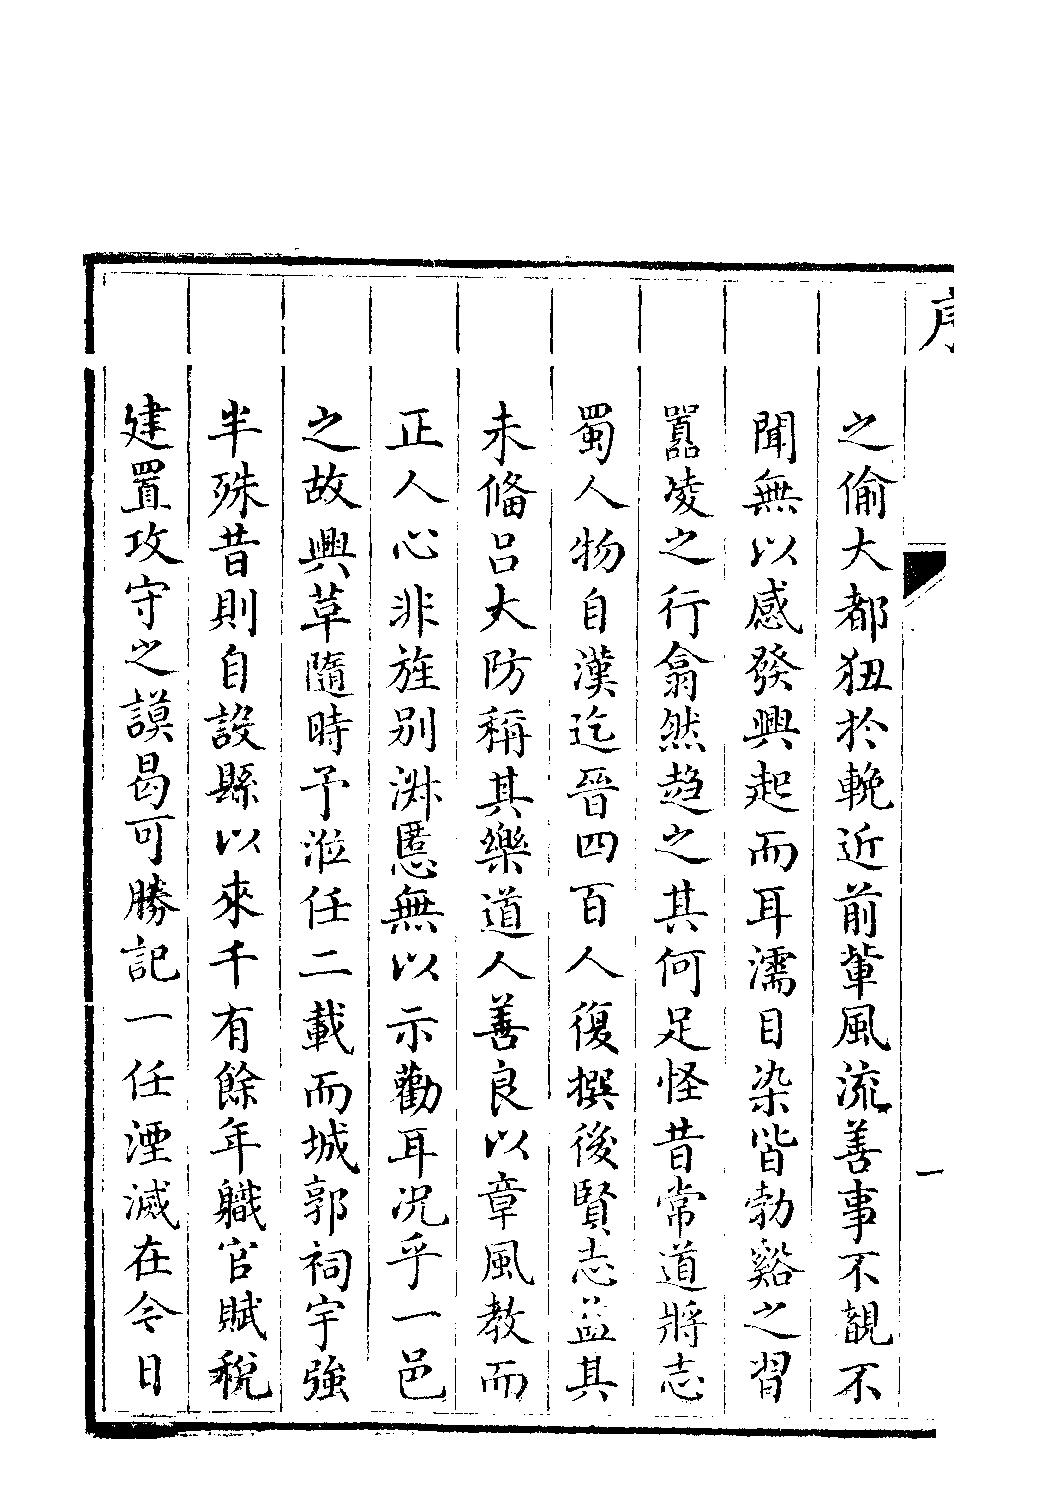 序
一
之偷大都狃於輓近前輩風流善事不覩不
聞無以感發興起而耳濡目染皆勃谿之習
囂凌之行翕然趋之其何足怪昔常道將志
蜀人物自漢迄晉四百人復撰後賢志益其
未俻呂大防稱其樂道人善良以章風教而
正人心非旌别淑慝無以示勸耳况乎一邑
之故興草隨時予涖任二載而城郭祠宇強
半殊昔則自設縣以來千有餘年職官賦稅
建置攻守之謨曷可勝記一任湮滅在今日